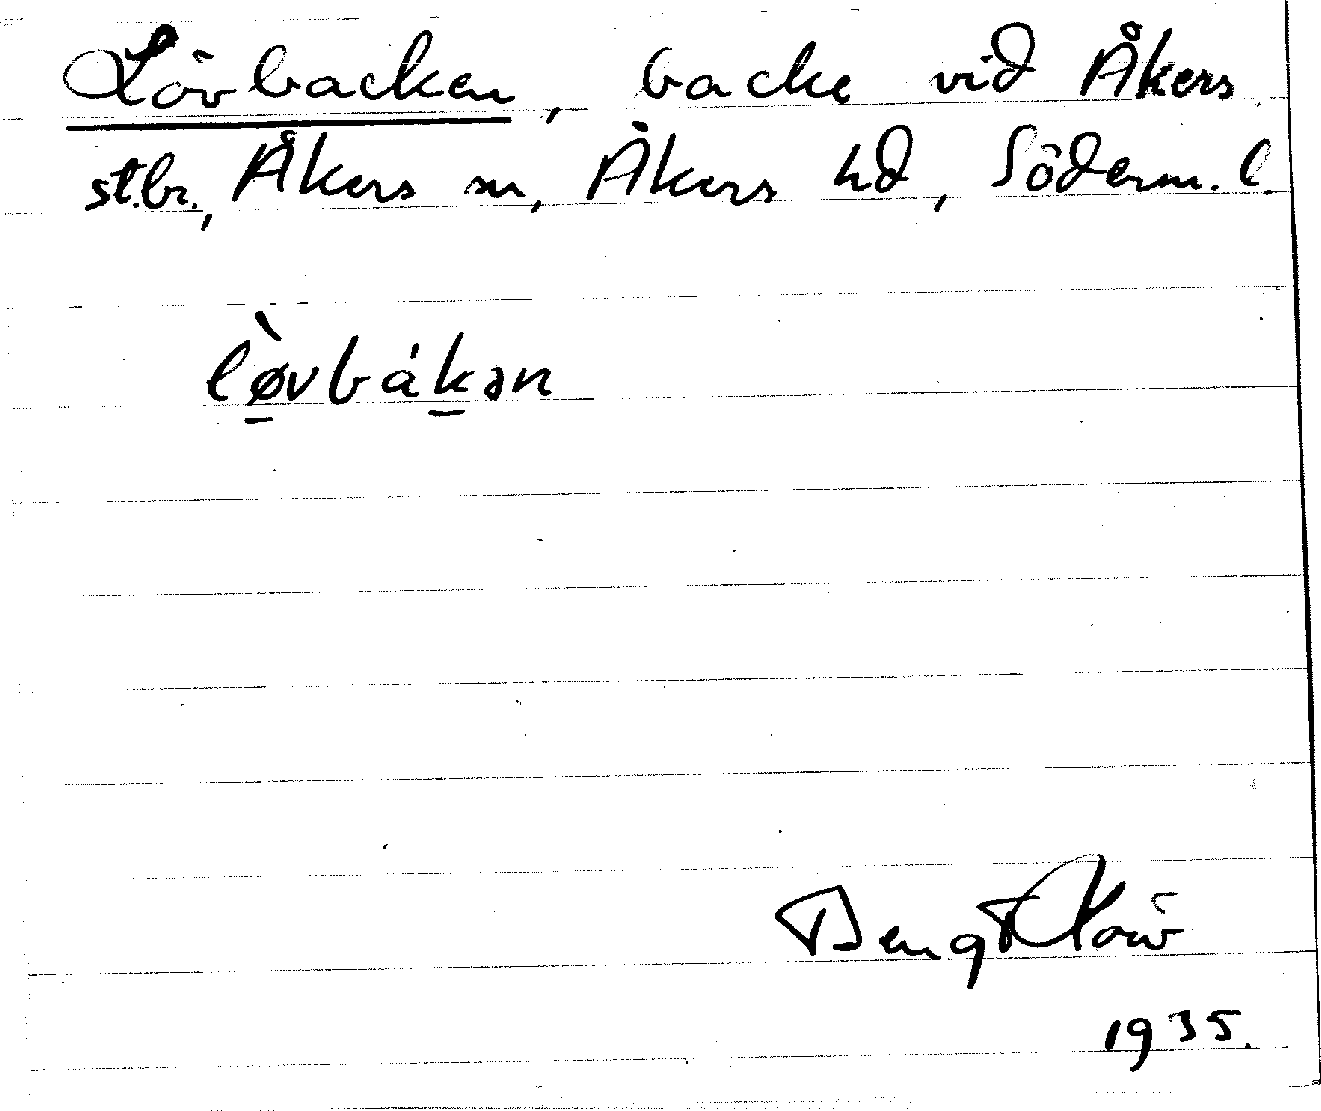 Lövbacken, backe vid Åkers
st.br., Åkers sn, Åkers hd, Söderm. l.
lø̀vbákən
Bengt
1935.